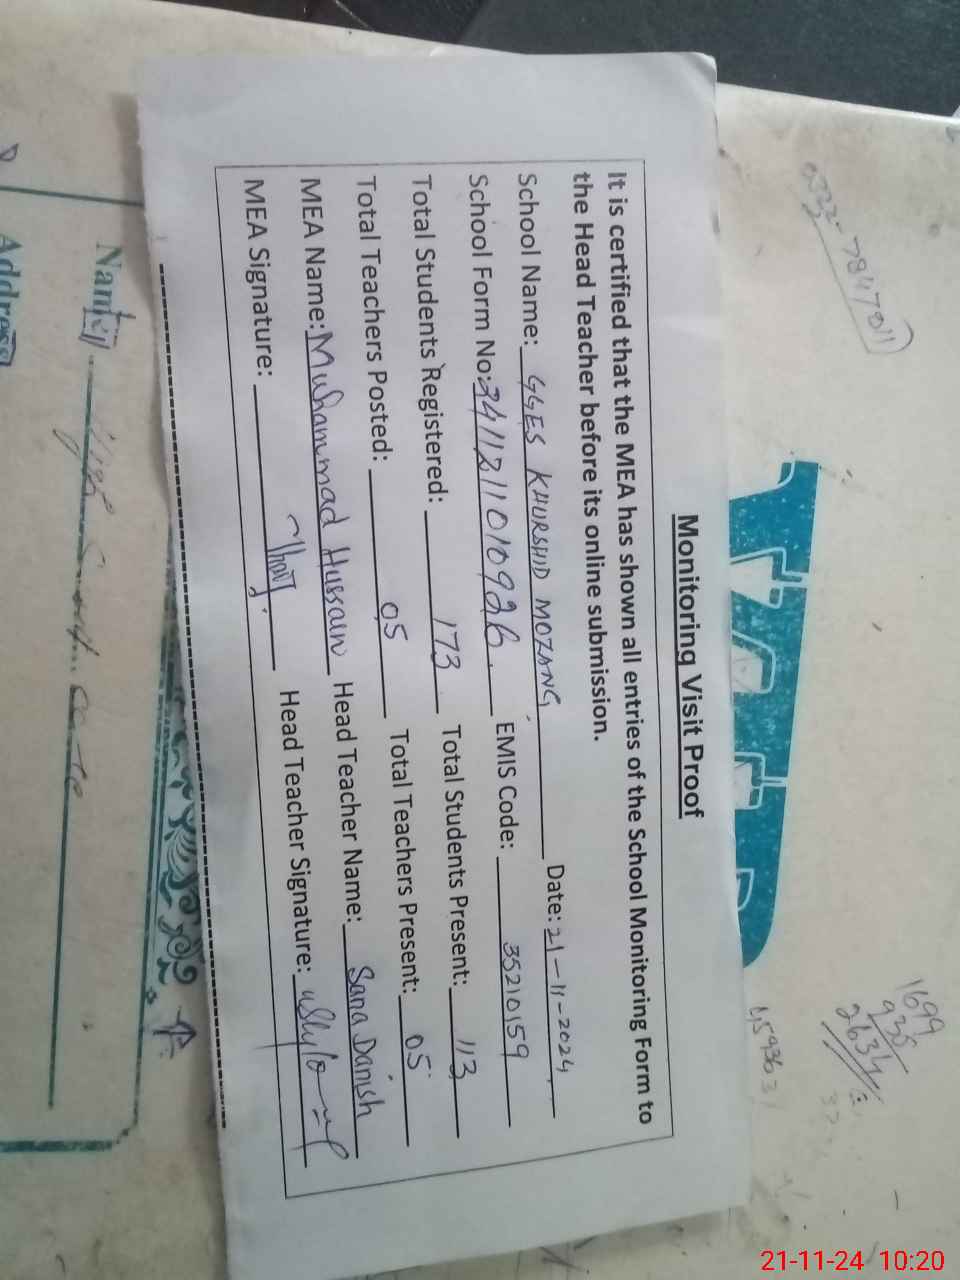 Monitoring Visit Proof
It is certified that the MEA has shown all entries of the School Monitoring Form to
the Head Teacher before its online submission.
School Name: GGES KHURSHID MOZANG Date: 21-11-2024
School Form No: EMIS Code: 35210159
Total Students Registered: 173 Total Students Present: 113
Total Teachers Posted: 05 Total Teachers Present: 05
MEA Name: Muhammad Hussain Head Teacher Name: Sana Danish
MEA Signature: Head Teacher Signature:
Name
Address
1699
935
2634
21-11-24 10:20